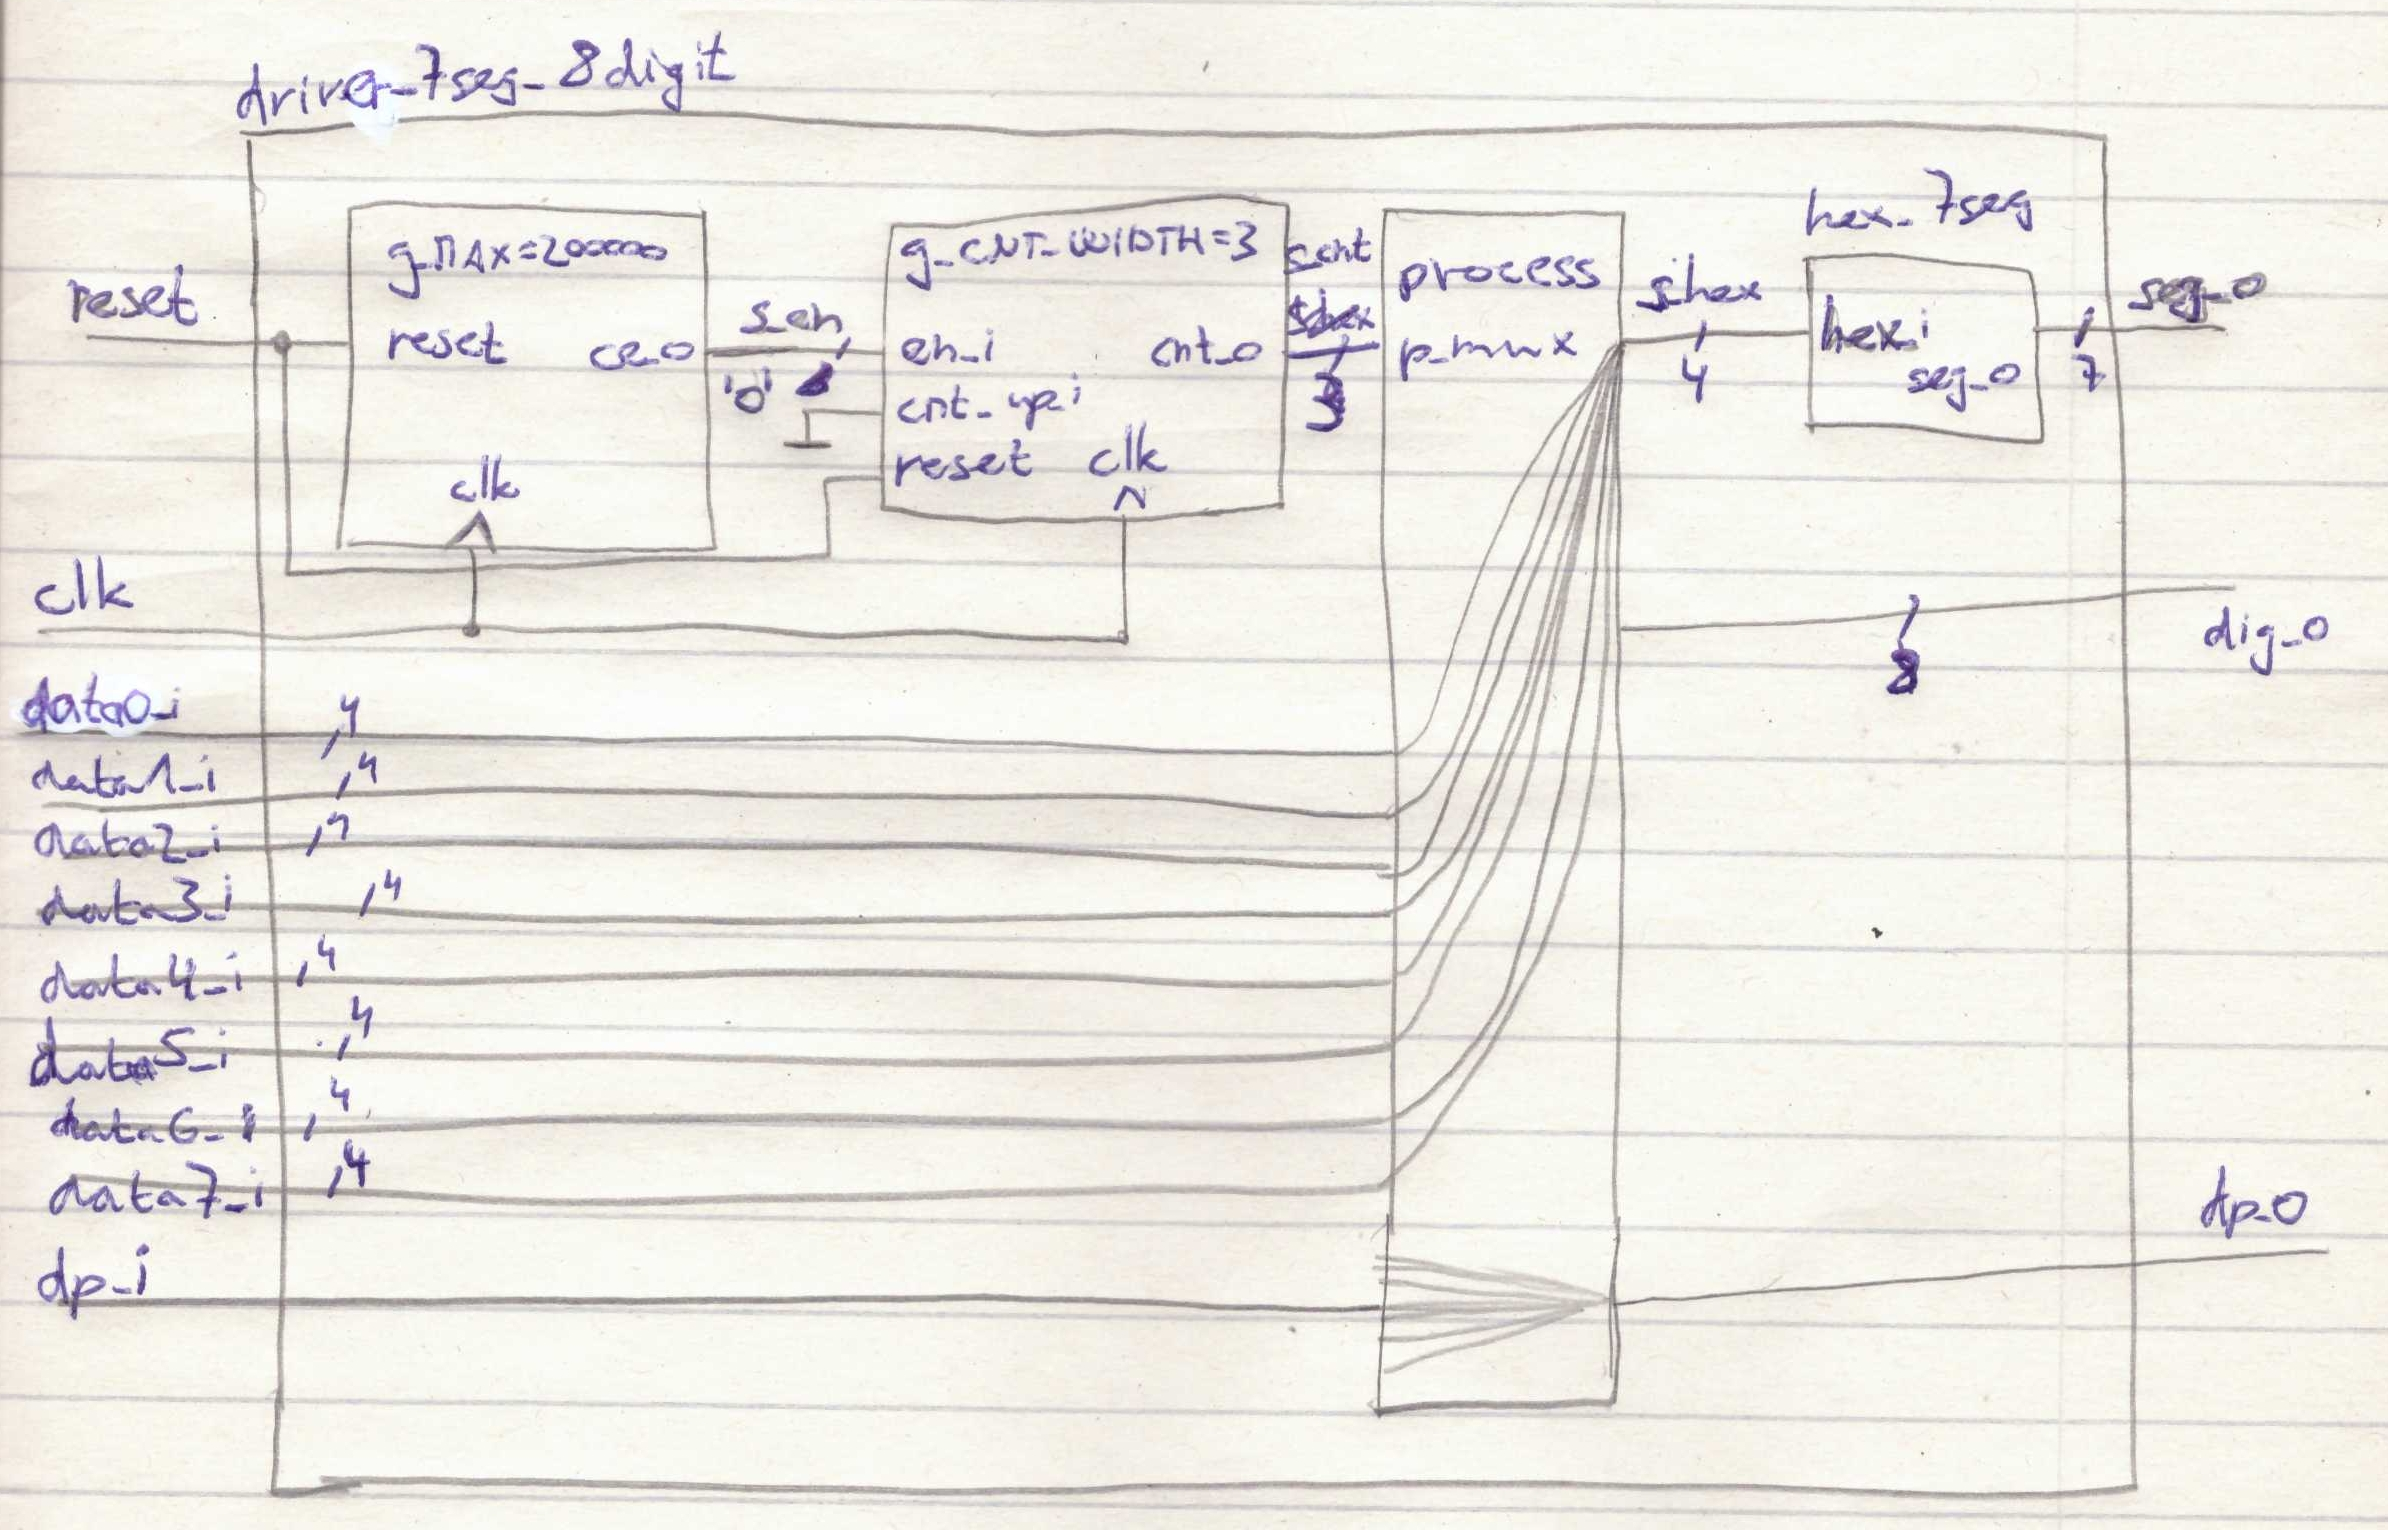 driver_7seg_8digit
reset
g_MAX=200000
reset
ce_o
clk
s_en
'0'
g_CNT_WIDTH=3
en_i
cnt_o
cnt_up_i
reset clk
s_cnt
s_hex
3
process
p_mux
s_hex
4
hex_7seg
hex_i
seg_o
7
seg_o
clk
dig_o
8
data0_i 4
data1_i 4
data2_i 4
data3_i 4
data4_i 4
data5_i 4
data6_i 4
data7_i 4
dp_i
dp_o